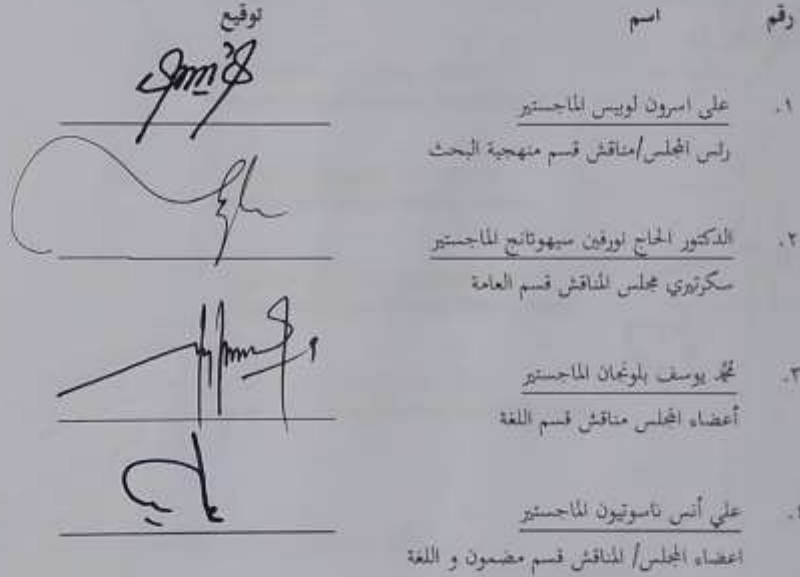 رقم اسم توقيع
١. على اسرون لوبيس الماجستير
رئس المجلس/مناقش قسم منهجية البحث
٢. الدكتور الحاج نورفين سيهوتانج الماجستير
سكرتيري مجلس المناقش قسم العامة
٣. محمد يوسف بلونجان الماجستير
أعضاء المجلس مناقش قسم اللغة
٤. علي أنس ناسوتيون الماجستير
اعضاء المجلس/ المناقش قسم مضمون و اللغة